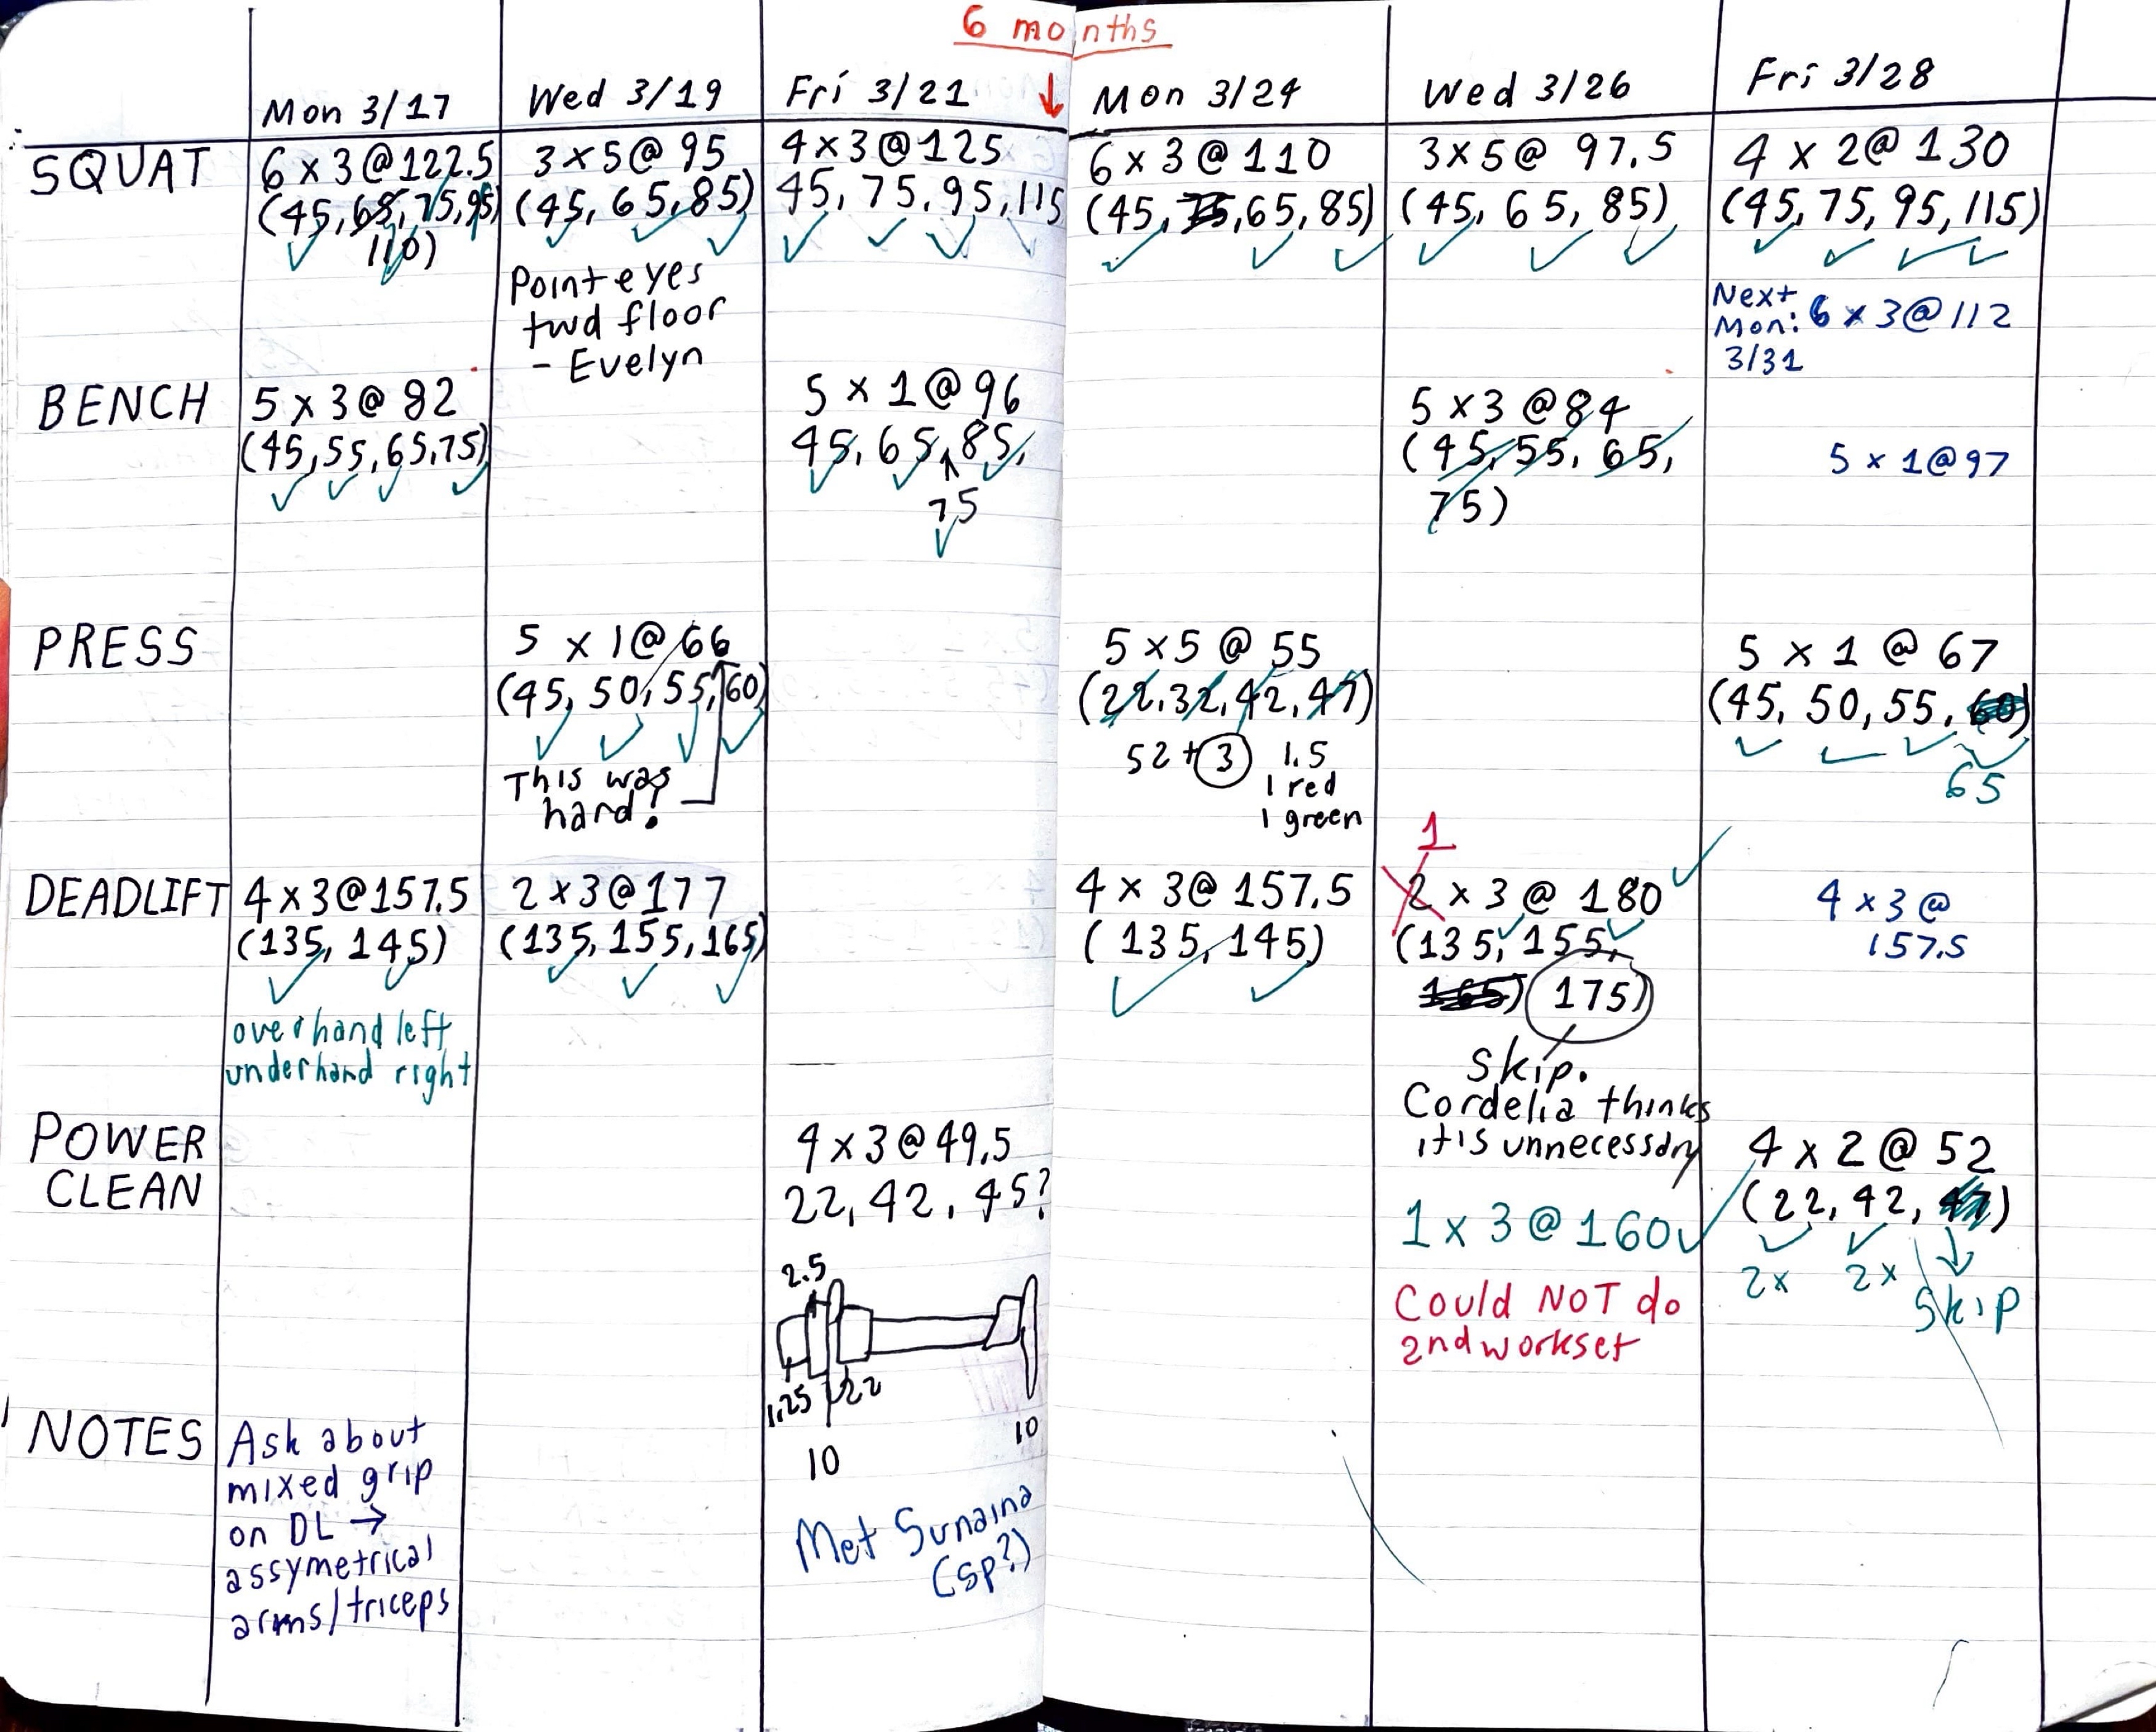 6 months
Mon 3/17
Wed 3/19
Fri 3/21
Mon 3/24
Wed 3/26
Fri 3/28
SQUAT
6 x 3 @ 122.5
(45, 65, 75, 95
110)
3 x 5 @ 95
(45, 65, 85)
Point eyes
twd floor
- Evelyn
4 x 3 @ 125
45, 75, 95, 115
6 x 3 @ 110
(45, 75, 65, 85)
3 x 5 @ 97.5
(45, 65, 85)
4 x 2 @ 130
(45, 75, 95, 115)
Next
Mon: 6 x 3 @ 112
3/31
BENCH
5 x 3 @ 82
(45, 55, 65, 75)
5 x 1 @ 96
45, 65, 85,
75
5 x 3 @ 84
(45, 55, 65,
75)
5 x 1 @ 97
PRESS
5 x 1 @ 66
(45, 50, 55, 60)
This was
hard!
5 x 5 @ 55
(22, 32, 42, 47)
52 + 3 1.5
1 red
1 green
5 x 1 @ 67
(45, 50, 55, 60)
65
DEADLIFT
4 x 3 @ 157.5
(135, 145)
overhand left
underhand right
2 x 3 @ 177
(135, 155, 165)
4 x 3 @ 157.5
(135, 145)
1
2 x 3 @ 180
(135, 155,
165) 175)
Skip.
Cordelia thinks
it is unnecessary
1 x 3 @ 160
Could NOT do
2nd workset
4 x 3 @
157.5
POWER
CLEAN
4 x 3 @ 49.5
22, 42, 45?
2.5
1.25 22
10
10
4 x 2 @ 52
(22, 42, 47)
2x 2x
Skip
NOTES
Ask about
mixed grip
on DL →
assymetrical
arms/triceps
Met Sunaina
(sp?)